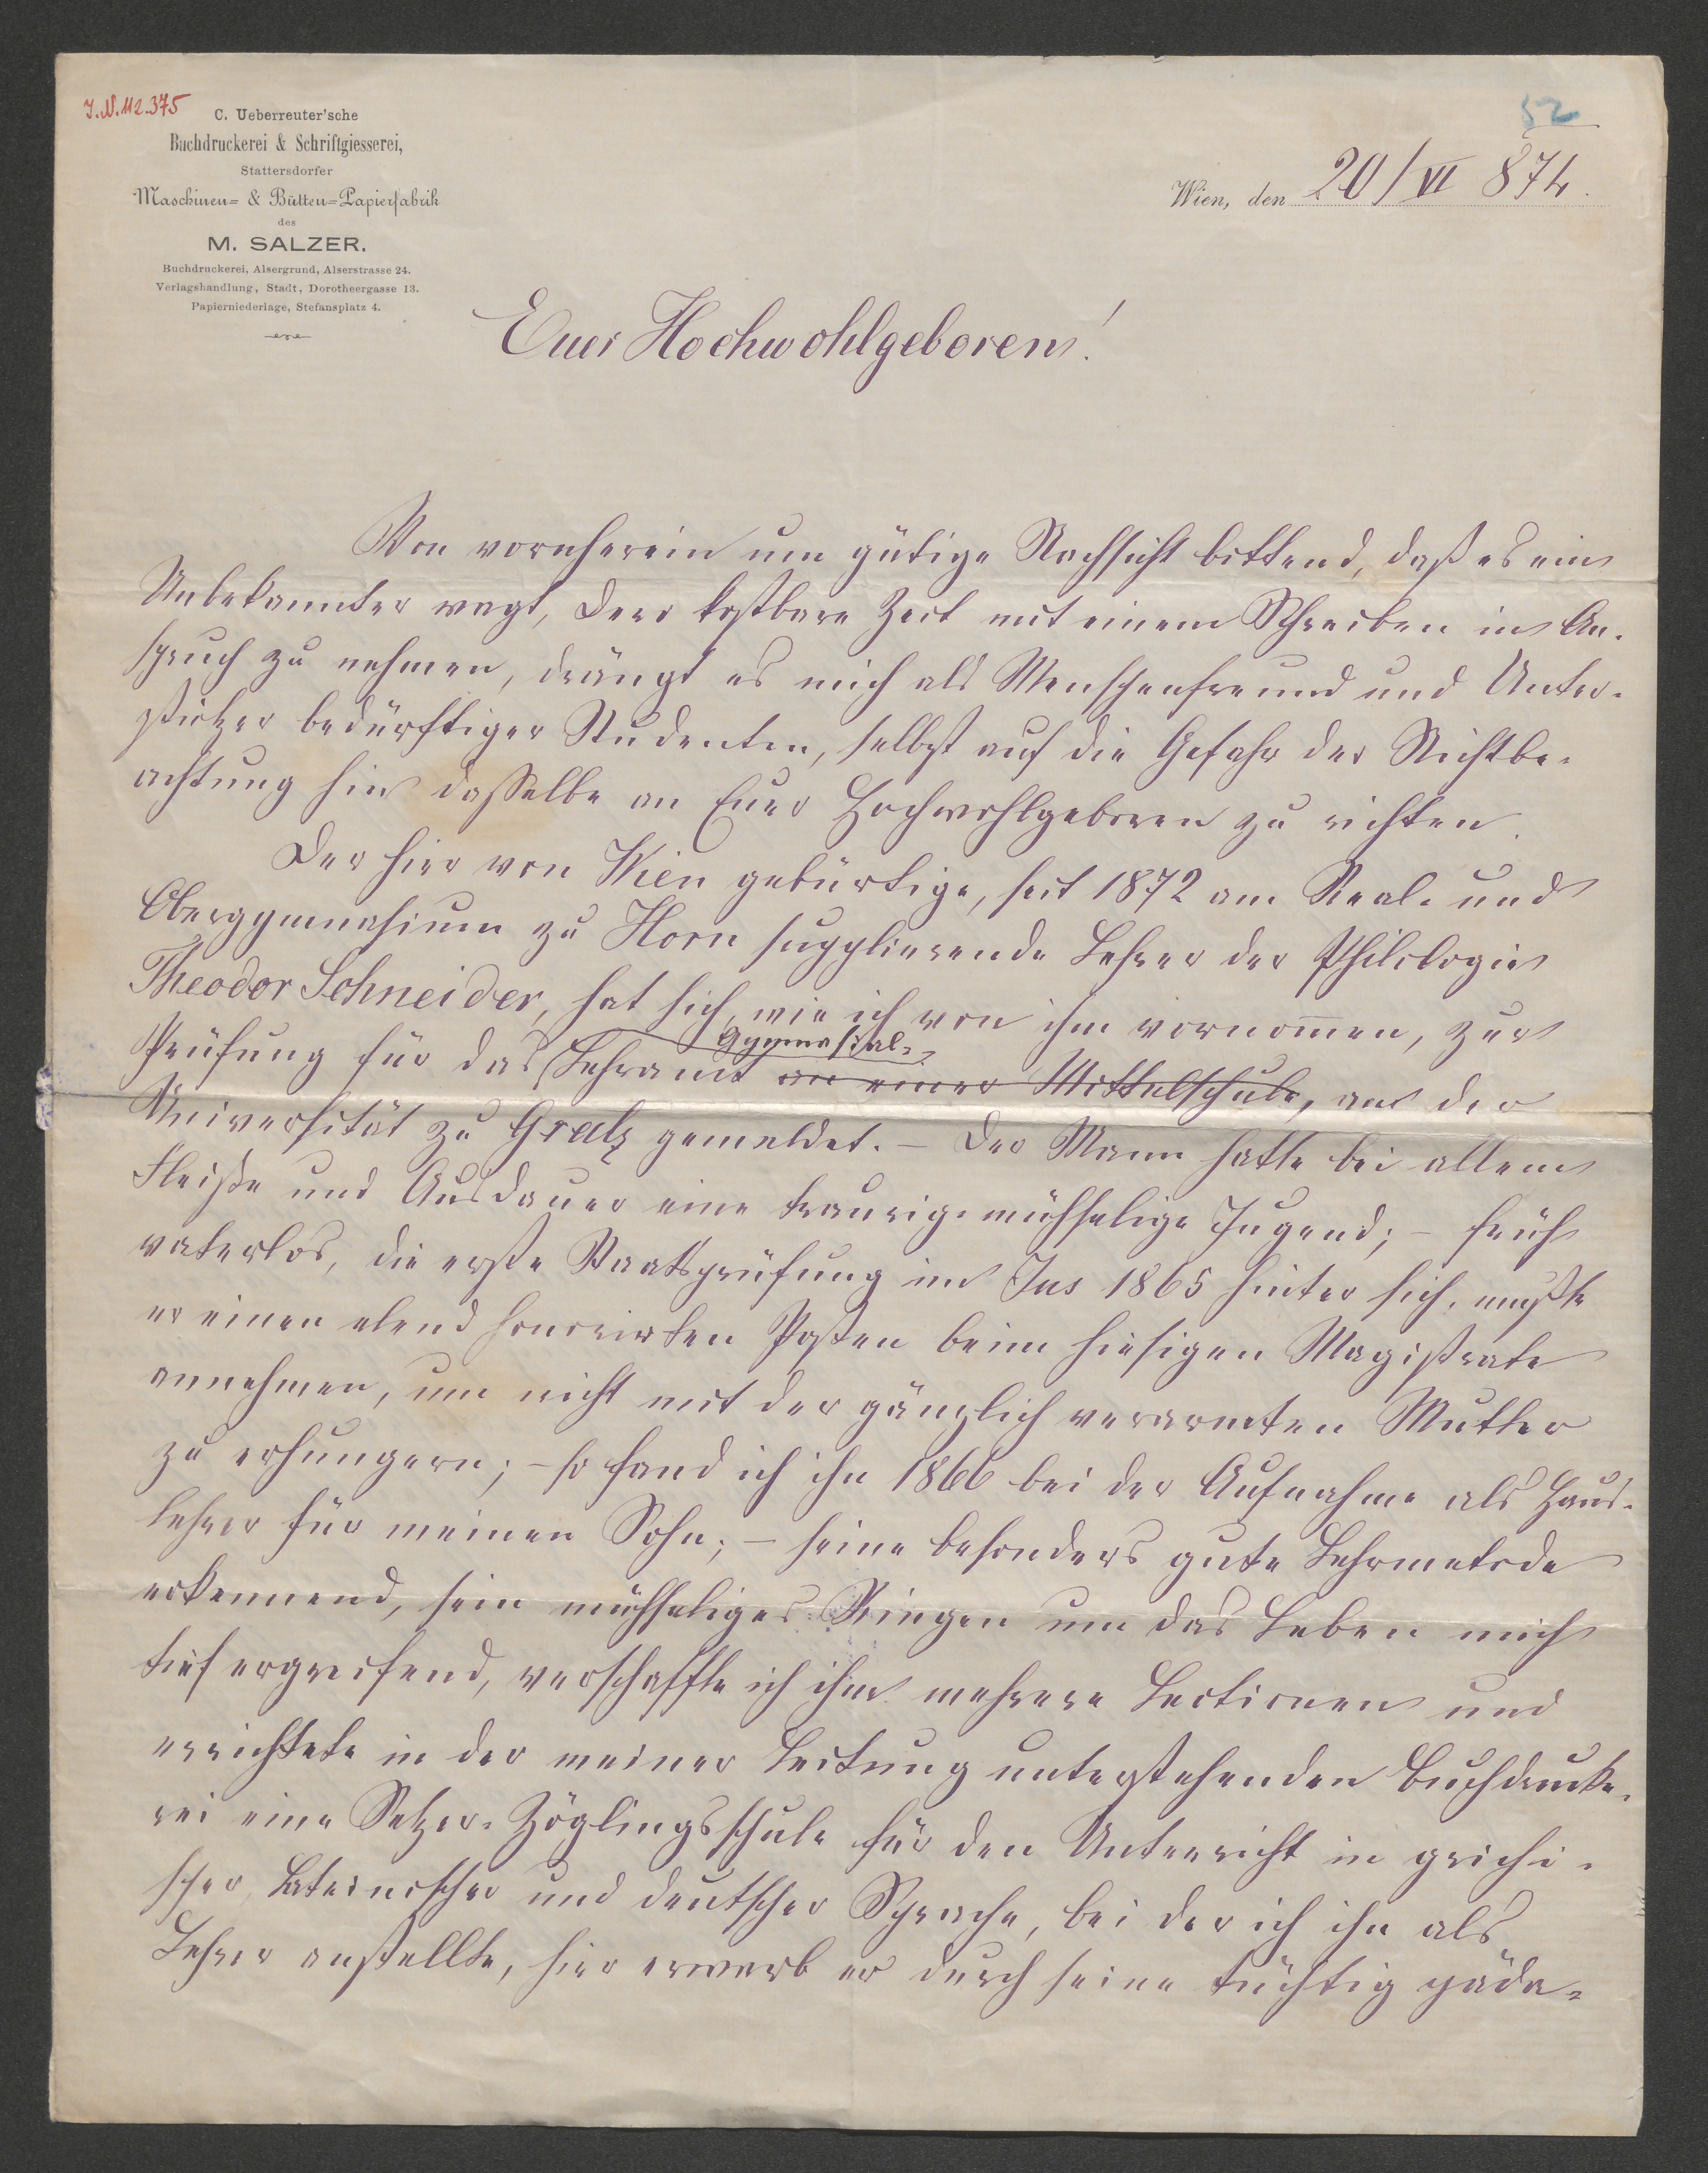 J.N. 112.375
52
C. Ueberreuter'sche
Buchdruckerei & Schriftgiesserei,
Stattersdorfer
Maschinen= & Bütten=Papierfabrik
des
M. SALZER.
Buchdruckerei, Alsergrund, Alserstrasse 24.
Verlagshandlung, Stadt, Dorotheergasse 13.
Papierniederlage, Stefansplatz 4.
Wien, den 20/VI 874.
Euer Hochwohlgeboren!
Von vornherein um gütige Nachsicht bittend, daß es ein
Unbekannter wagt, Dero kostbare Zeit mit einem Schreiben in An-
spruch zu nehmen, drängt es mich als Menschenfreund und Unter-
stützer bedürftiger Studenten, selbst auf die Gefahr der Nichtbe-
achtung hin dasselbe an Euer Hochwohlgeboren zu richten.
Der hier von Wien gebürtige, seit 1872 am Real- und
Obergymnasium zu Horn supplierende Lehrer der Philologie
Theodor Schneider, hat sich, wie ich von ihm vernom̄en, zur
Gymnasial-
Prüfung für das Lehramt an einer Mittelschule, an der
Universität zu Gratz gemeldet. – Der Mann hatte bei allem
Fleiße und Ausdauer eine traurig-mühselige Jugend; – früh
vaterlos, die erste Staatsprüfung im Jus 1865 hinter sich, mußte
er einen elend honorirten Posten beim hiesigen Magistrate
annehmen, um nicht mit der gänzlich verarmten Mutter
zu erhungern; – so fand ich ihn 1866 bei der Aufnahme als Haus-
lehrer für meinen Sohn; – seine besonders gute Lehrmetode
erkennend, sein mühseliges Ringen um das Leben mich
tief ergreifend, verschaffte ich ihm mehrere Lectionen und
errichtete in der meiner Leitung unterstehenden Buchdrucke-
rei eine Setzer-Zöglingsschule für den Unterricht in grichi-
scher, lateinischer und deutscher Sprache, bei der ich ihn als
Lehrer anstellte, hier erwarb er durch seine tüchtig päda-